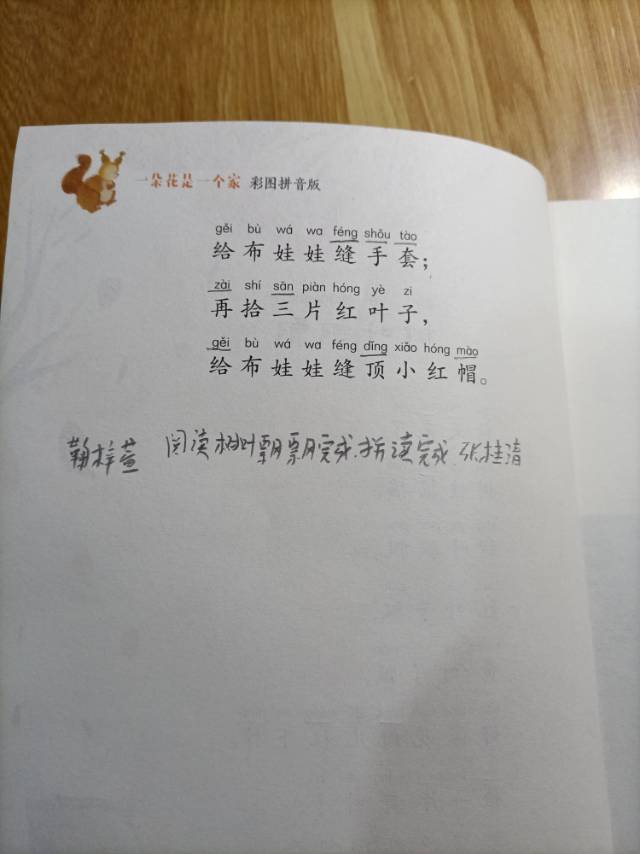 一朵花是一个家 彩图拼音版
gěi bù wá wa féng shǒu tào
给布娃娃缝手套；
zài shí sān piàn hóng yè zi
再拾三片红叶子，
gěi bù wá wa féng dǐng xiǎo hóng mào
给布娃娃缝顶小红帽。
鞠梓萱 阅读树叶飘飘完成.拼读完成.张桂清